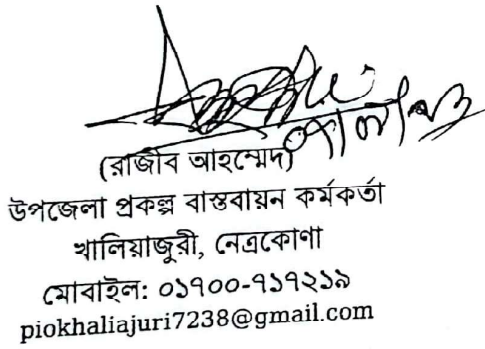 (রাজীব আহম্মেদ)
উপজেলা প্রকল্প বাস্তবায়ন কর্মকর্তা
খালিয়াজুরী, নেত্রকোণা
মোবাইল: ০১৭০০-৭১৭২১৯
piokhaliajuri7238@gmail.com